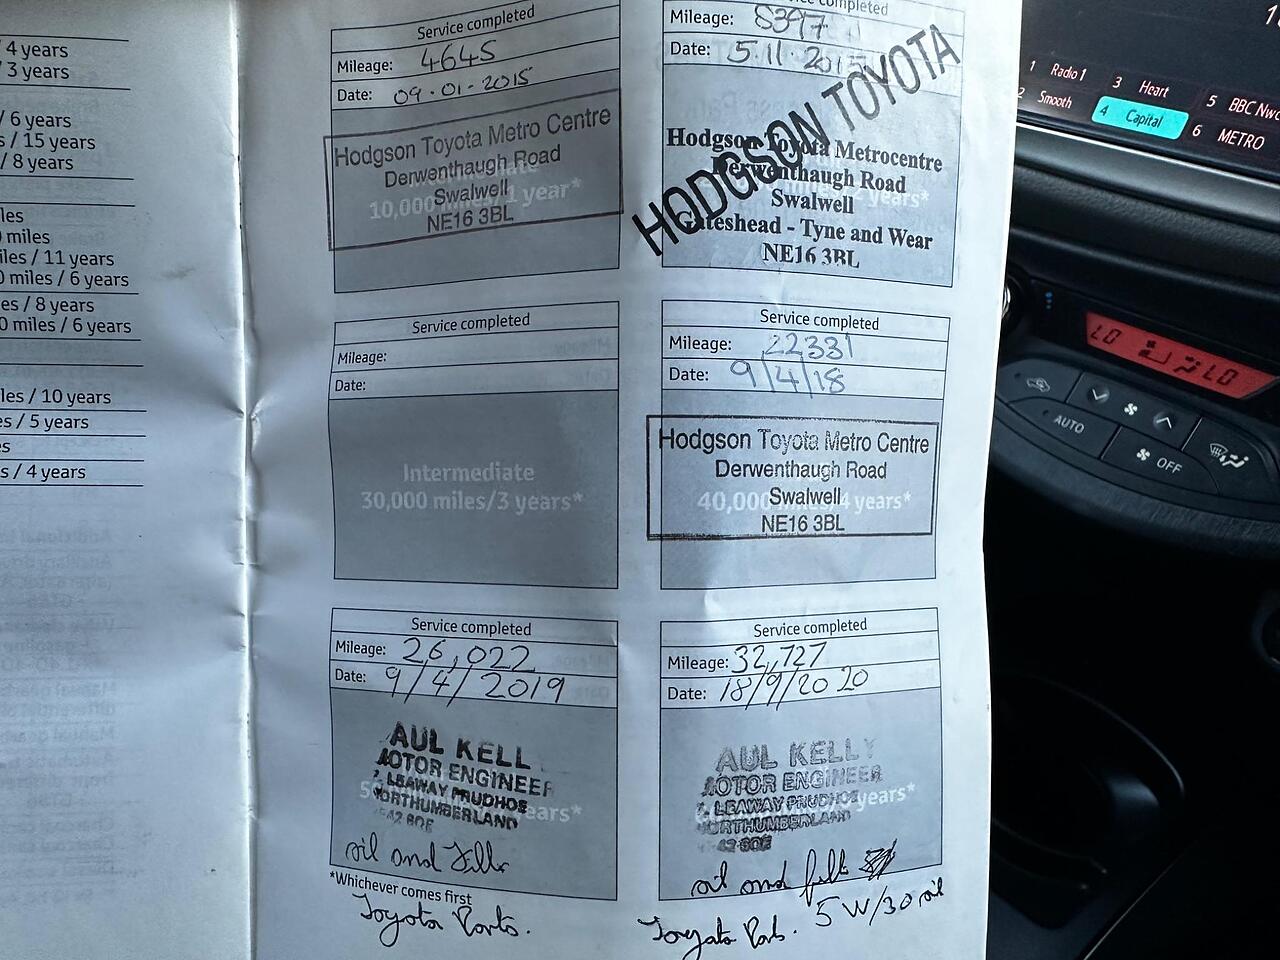 / 4 years
/ 3 years
/ 6 years
s / 15 years
/ 8 years
les
miles
iles / 11 years
0 miles / 6 years
es / 8 years
0 miles / 6 years
les / 10 years
es / 5 years
es
s / 4 years
Service completed
Mileage: 4645
Date: 09.01.2015
Hodgson Toyota Metro Centre
Derwenthaugh Road
Swalwell
NE16 3BL
10,000 miles/1 year*
completed
Mileage: 8397
Date: 5.11.201
HODGSON TOYOTA
Hodgson Toyota Metrocentre
Derwenthaugh Road
Swalwell
Gateshead - Tyne and Wear
NE16 3BL
years*
Service completed
Mileage:
Date:
Intermediate
30,000 miles/3 years*
Service completed
Mileage: 22331
Date: 9/4/18
Hodgson Toyota Metro Centre
Derwenthaugh Road
Swalwell
NE16 3BL
40,000 4 years*
Service completed
Mileage: 26,022
Date: 9/4/2019
AUL KELL
MOTOR ENGINEER
LEAWAY PRUDHOE
NORTHUMBERLAND
years*
oil and
*Whichever comes first
Toyota Parts.
Service completed
Mileage: 32,727
Date: 18/9/2020
AUL KELLY
MOTOR ENGINEER
LEAWAY PRUDHOE
NORTHUMBERLAND
years*
oil and
Toyota Parts. 5W/30 oil
1 Radio 1
3 Heart
5 BBC Nwc
2 Smooth
4 Capital
6 METRO
LO LO
AUTO
OFF